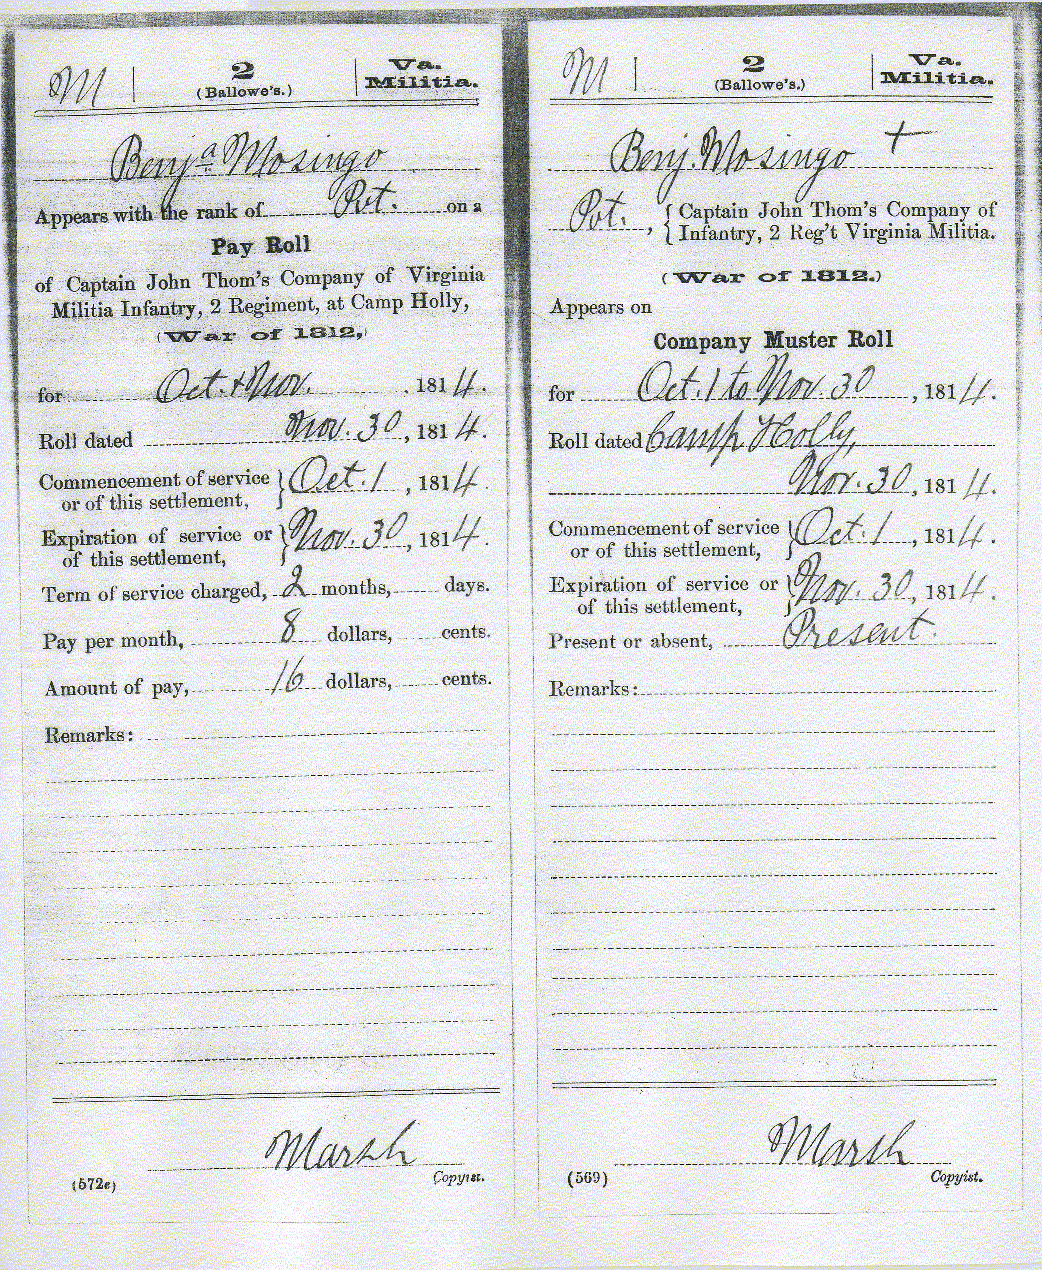 M
2
(Ballowe's.)
Va.
Militia.
Benj a Mosingo
Appears with the rank of Pvt. on a
Pay Roll
of Captain John Thom's Company of Virginia
Militia Infantry, 2 Regiment, at Camp Holly,
(War of 1812,)
for Oct. & Nov. , 1814.
Roll dated Nov. 30, 1814.
Commencement of service
or of this settlement, } Oct. 1 , 1814.
Expiration of service or
of this settlement, } Nov. 30, 1814.
Term of service charged, 2 months, days.
Pay per month, 8 dollars, cents.
Amount of pay, 16 dollars, cents.
Remarks:
Marsh
(572e) Copyist.
M
2
(Ballowe's.)
Va.
Militia.
Benj. Mosingo +
Pvt. , { Captain John Thom's Company of
Infantry, 2 Reg't Virginia Militia.
(War of 1812.)
Appears on
Company Muster Roll
for Oct. 1 to Nov. 30 , 1814.
Roll dated Camp Holly,
Nov. 30, 1814.
Commencement of service
or of this settlement, } Oct. 1 , 1814.
Expiration of service or
of this settlement, } Nov. 30, 1814.
Present or absent, Present.
Remarks:
Marsh
(569) Copyist.